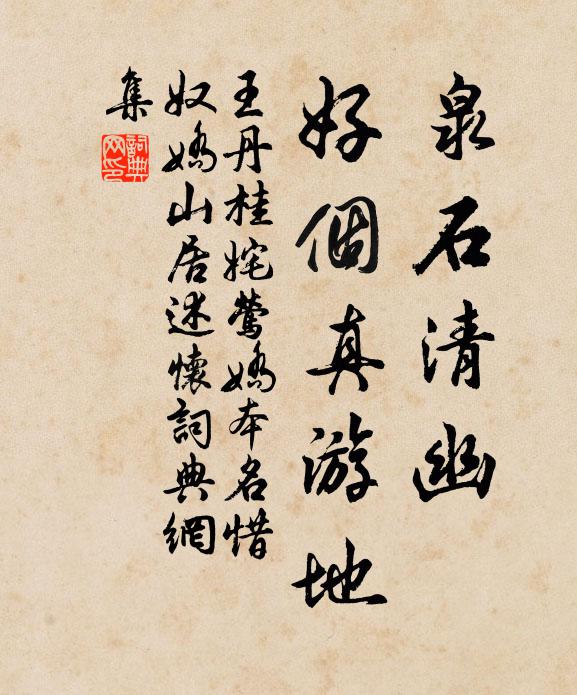 泉石清幽
好個真游地
王丹桂姹鶯嬌本名惜
奴嬌山居述懷詞典網
集
詞典網印